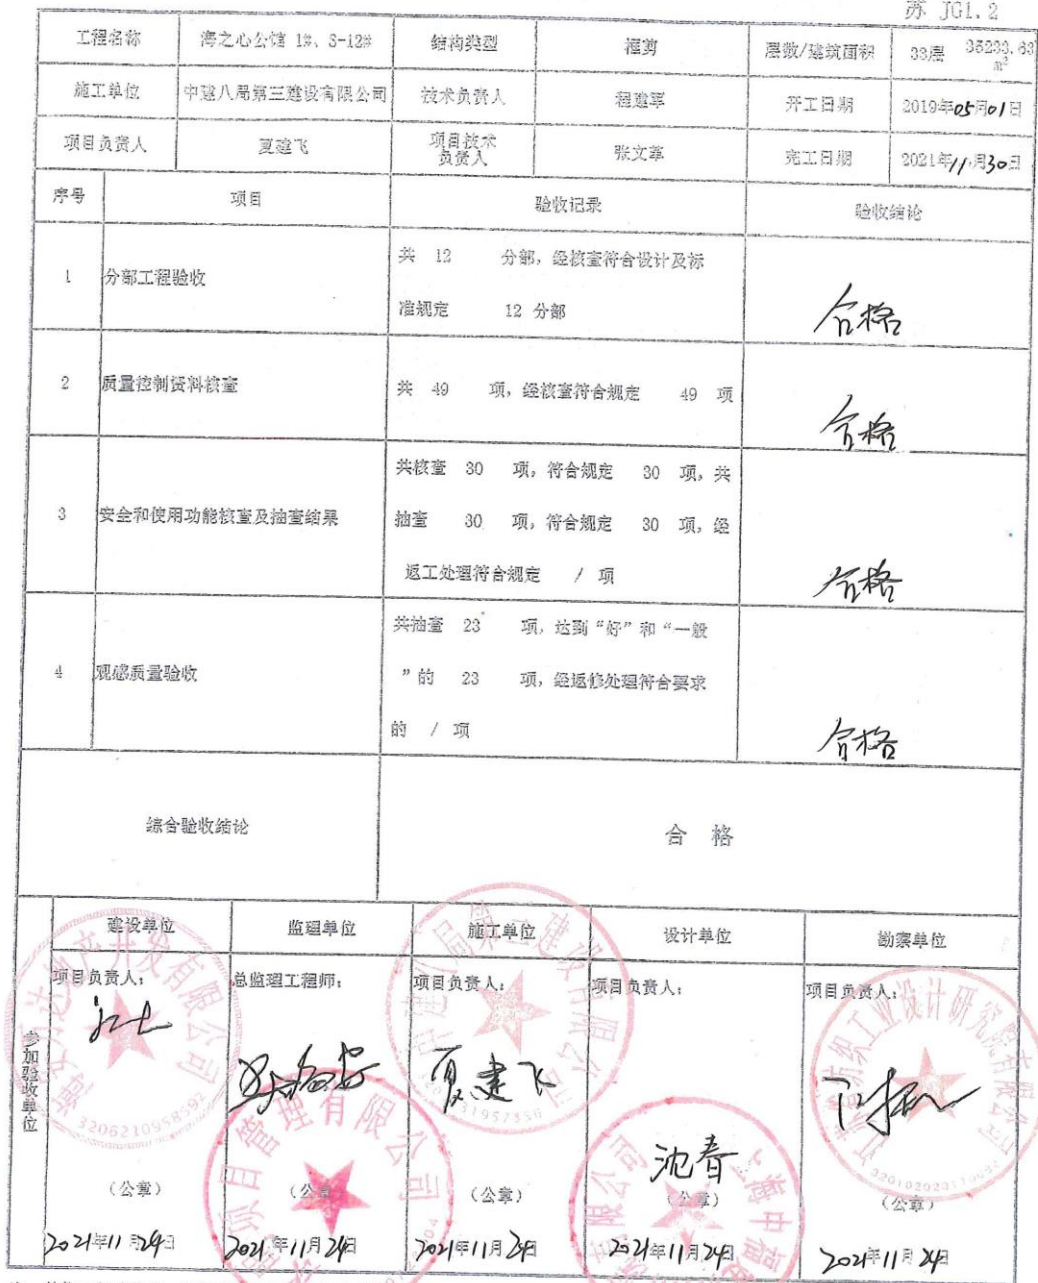 苏 JG1.2
工程名称 海之心公馆 1#、S-12# 结构类型 框剪 层数/建筑面积 33层 35233.63m²
施工单位 中建八局第三建设有限公司 技术负责人 程建军 开工日期 2019年05月01日
项目负责人 夏建飞 项目技术负责人 张文革 完工日期 2021年11月30日
序号 项目 验收记录 验收结论
1 分部工程验收 共 12 分部，经核查符合设计及标
准规定 12 分部 合格
2 质量控制资料核查 共 49 项，经核查符合规定 49 项 合格
3 安全和使用功能核查及抽查结果 共核查 30 项，符合规定 30 项，共
抽查 30 项，符合规定 30 项，经
返工处理符合规定 / 项 合格
4 观感质量验收 共抽查 23 项，达到“好”和“一般
”的 23 项，经返修处理符合要求
的 / 项 合格
综合验收结论 合 格
参加验收单位
建设单位 监理单位 施工单位 设计单位 勘察单位
项目负责人： 总监理工程师： 项目负责人： 项目负责人： 项目负责人：
夏建飞 沈春
（公章） （公章） （公章） （公章） （公章）
2021年11月24日 2021年11月24日 2021年11月24日 2021年11月24日 2021年11月24日
产开发有限公司
3206210958592
项目管理有限公司
建设有限公司
纺织工业设计研究院有限公司